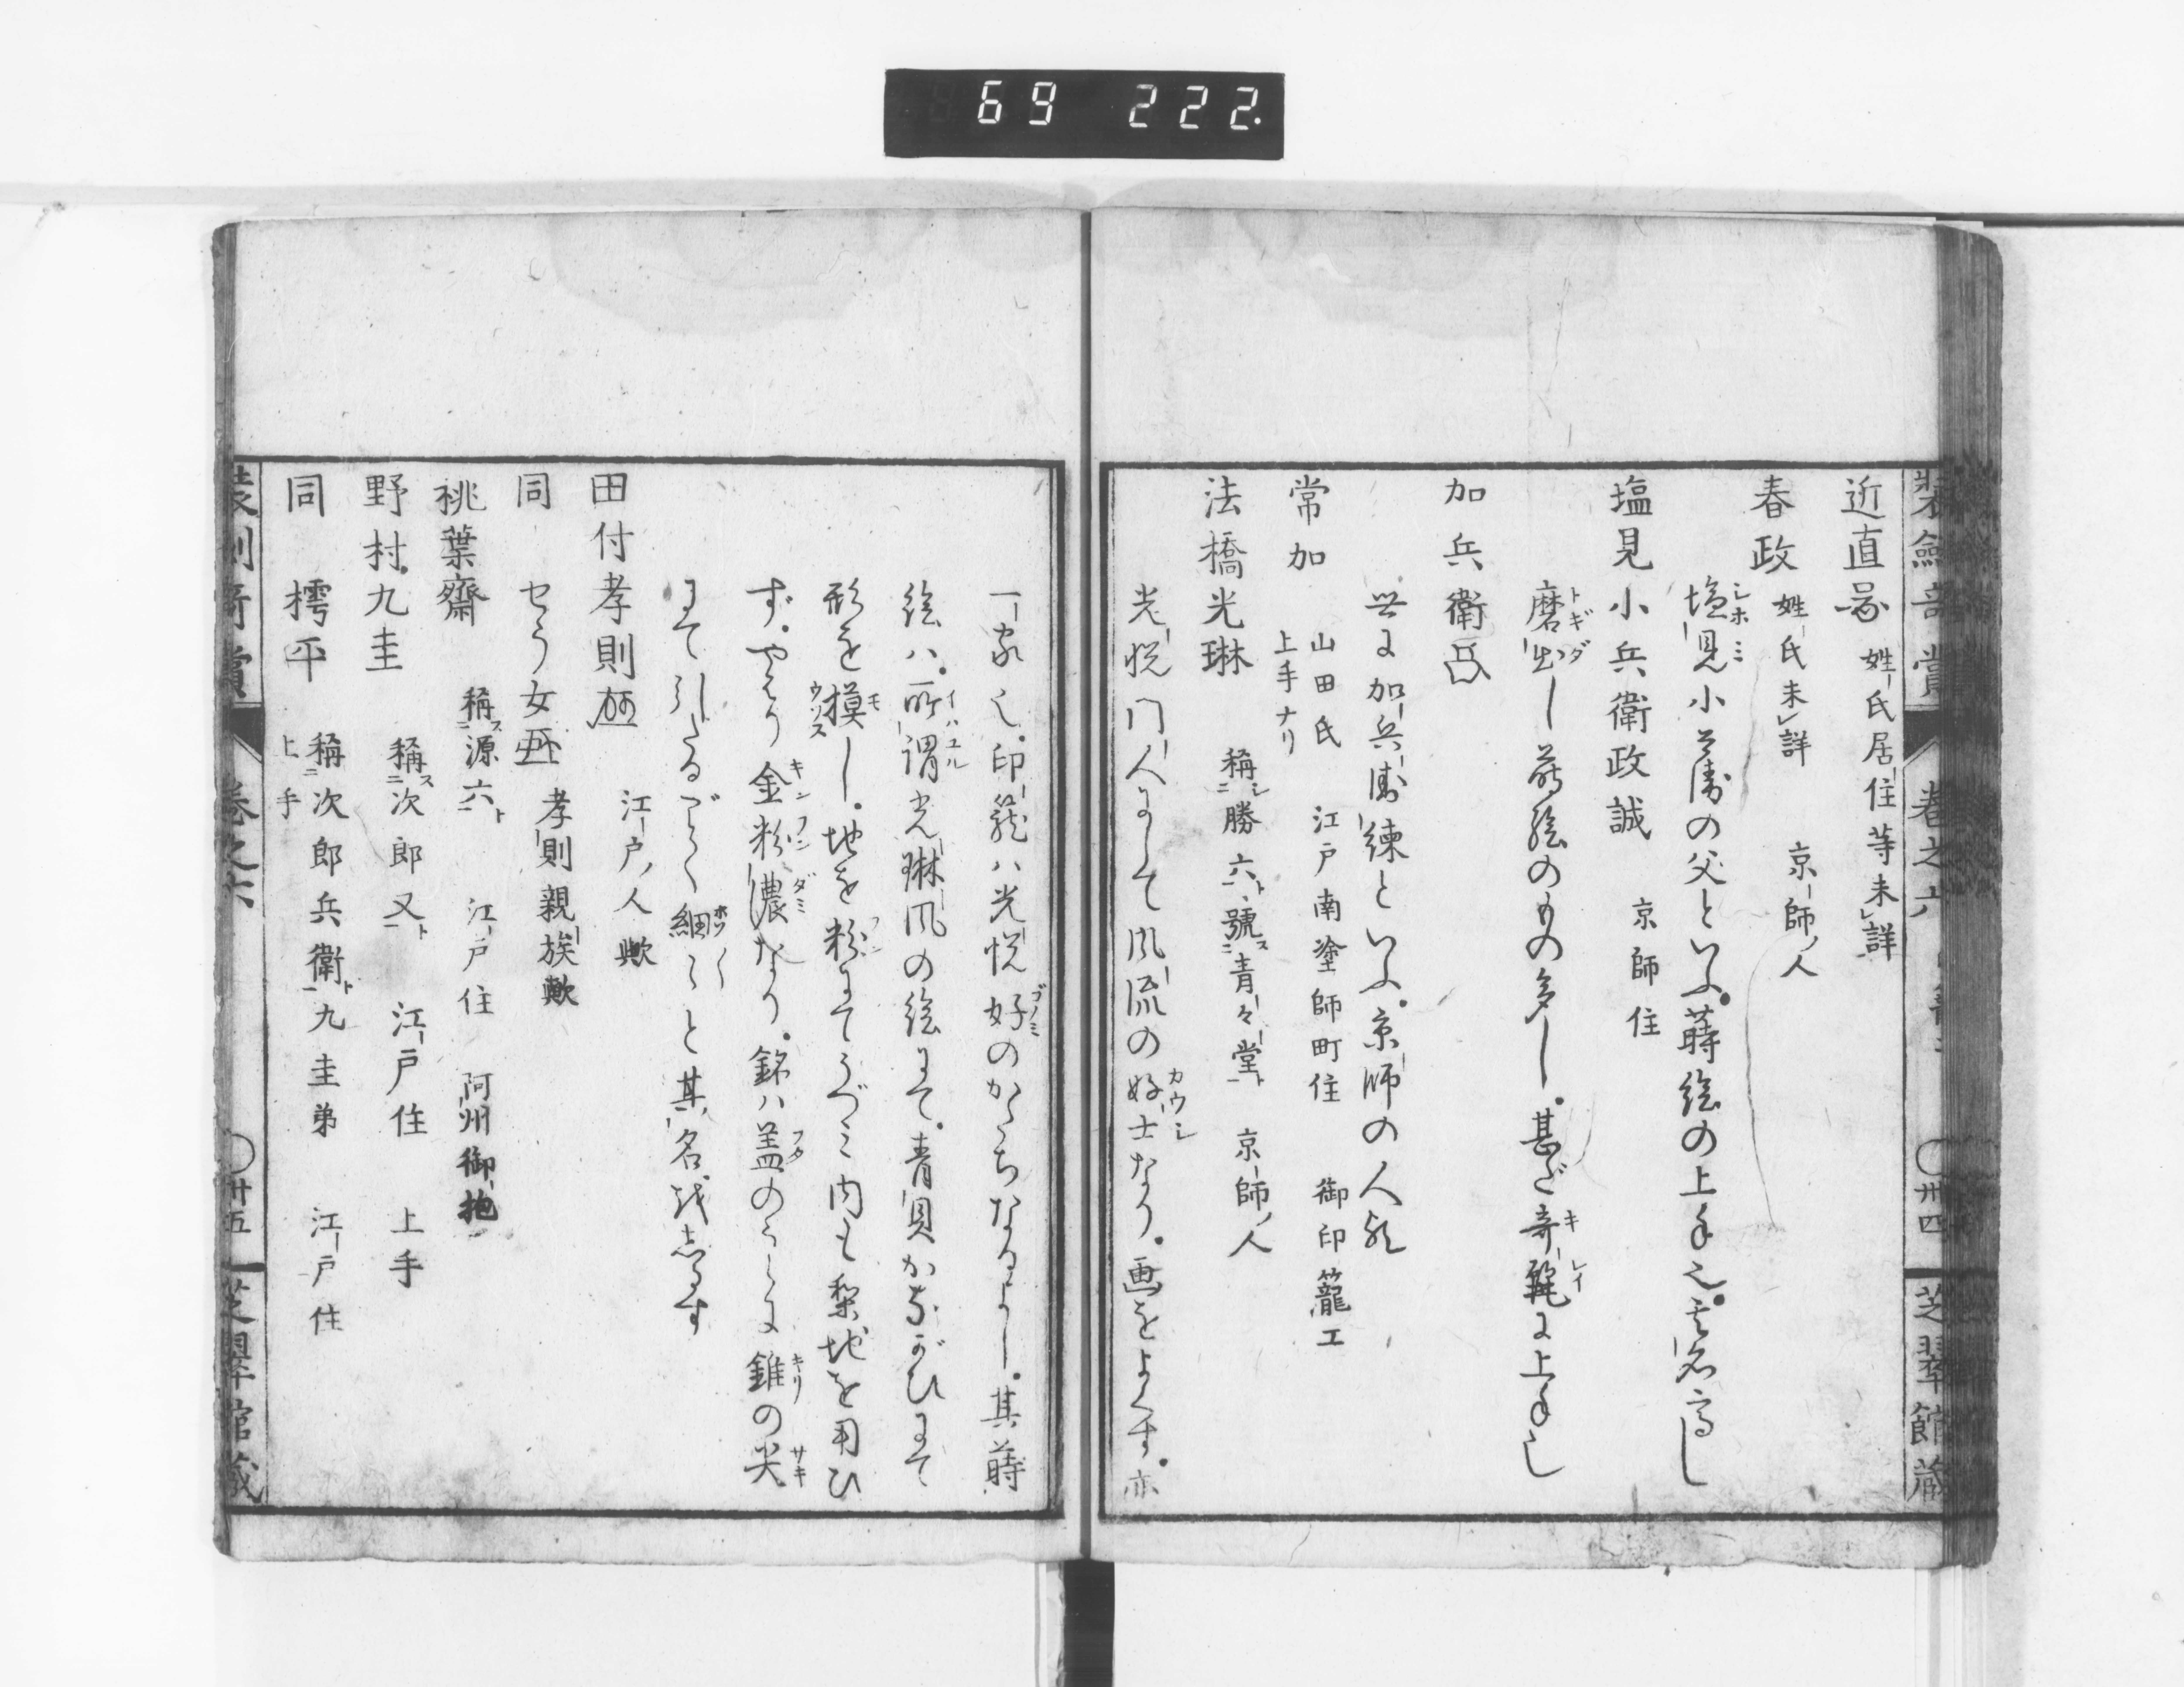 69 222.
装劔奇賞 巻之六 〇卅四 芝翠館蔵
近直 姓氏居住等未詳
春政 姓氏未詳 京師ノ人
塩見小兵衛の父といふ。蒔絵の上手也。其名高し
塩見小兵衛政誠 京師住
磨出し蒔絵のもの多し。甚だ奇麗に上手也
加兵衛
世に加兵衛練といふ。京師の人
常加 山田氏 江戸南塗師町住 御印籠工
上手ナリ
法橋光琳 稱勝六ト、號ス青々堂ト 京師ノ人
光悦門人にして風流の好士なり。画をよくす。亦
一家也。印籠ハ光悦好のかたちなるよし。其蒔
絵ハ。所謂光琳風の絵にて。青貝かながひにて
形を摸し。地を粉にてうづミ内も梨地を用ひ
ず。やはり金粉濃なり。銘ハ蓋のうらに錐の尖
にて引たるごとく細〱と其名を志るす
田付孝則 江戸ノ人歟
同 せう女 孝則親族歟
桃葉齋 稱ス源六ト 江戸住 阿州御抱
野村九圭 稱ス次郎又ト 江戸住 上手
同 樗平 稱次郎兵衛ト九圭弟 江戸住
上手
装劔奇賞 巻之六 〇廿五 芝翠館蔵